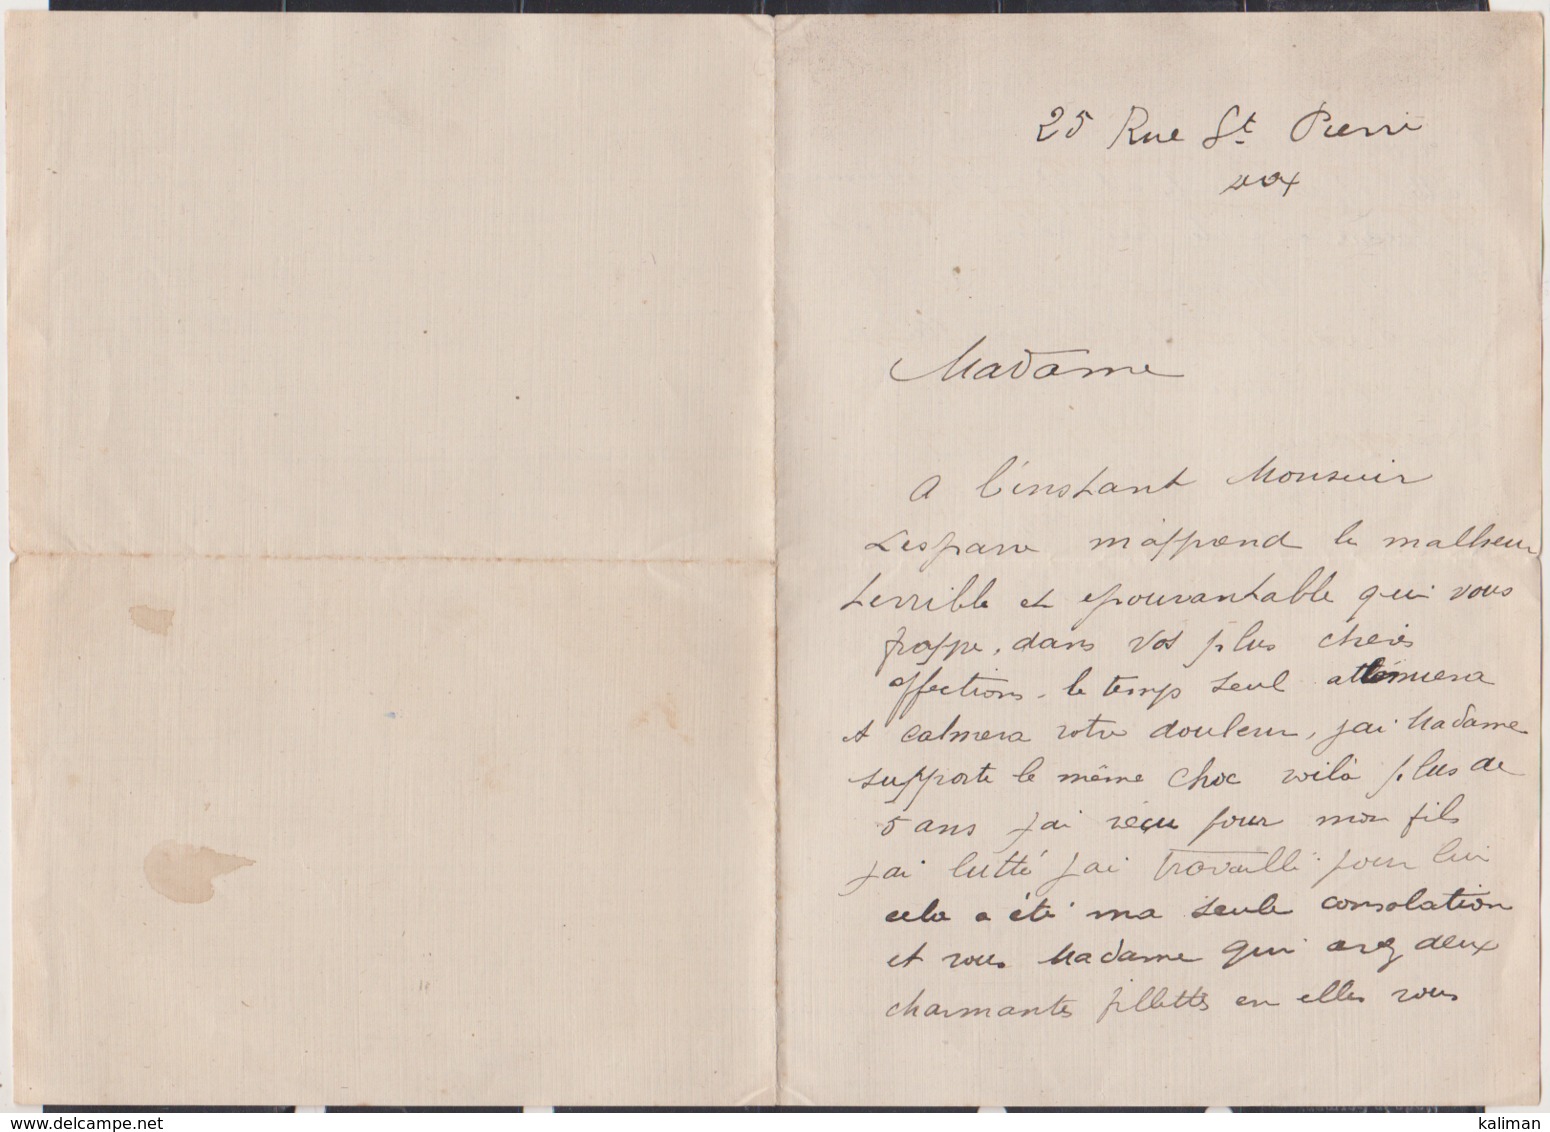 25 Rue St Pierre
Madame
A l'instant Monsieur
Lesparre m'apprend le malheur
terrible et epouvantable qui vous
frappe, dans vos plus cheres
affections. le temps seul attenuera
et calmera votre douleur, j'ai Madame
supporte le même choc voilà plus de
5 ans j'ai vécu pour mon fils
j'ai lutté j'ai travaillé pour lui
cela a été ma seule consolation
et vous Madame qui avez deux
charmantes fillettes en elles vous
delcampe.net
kaliman